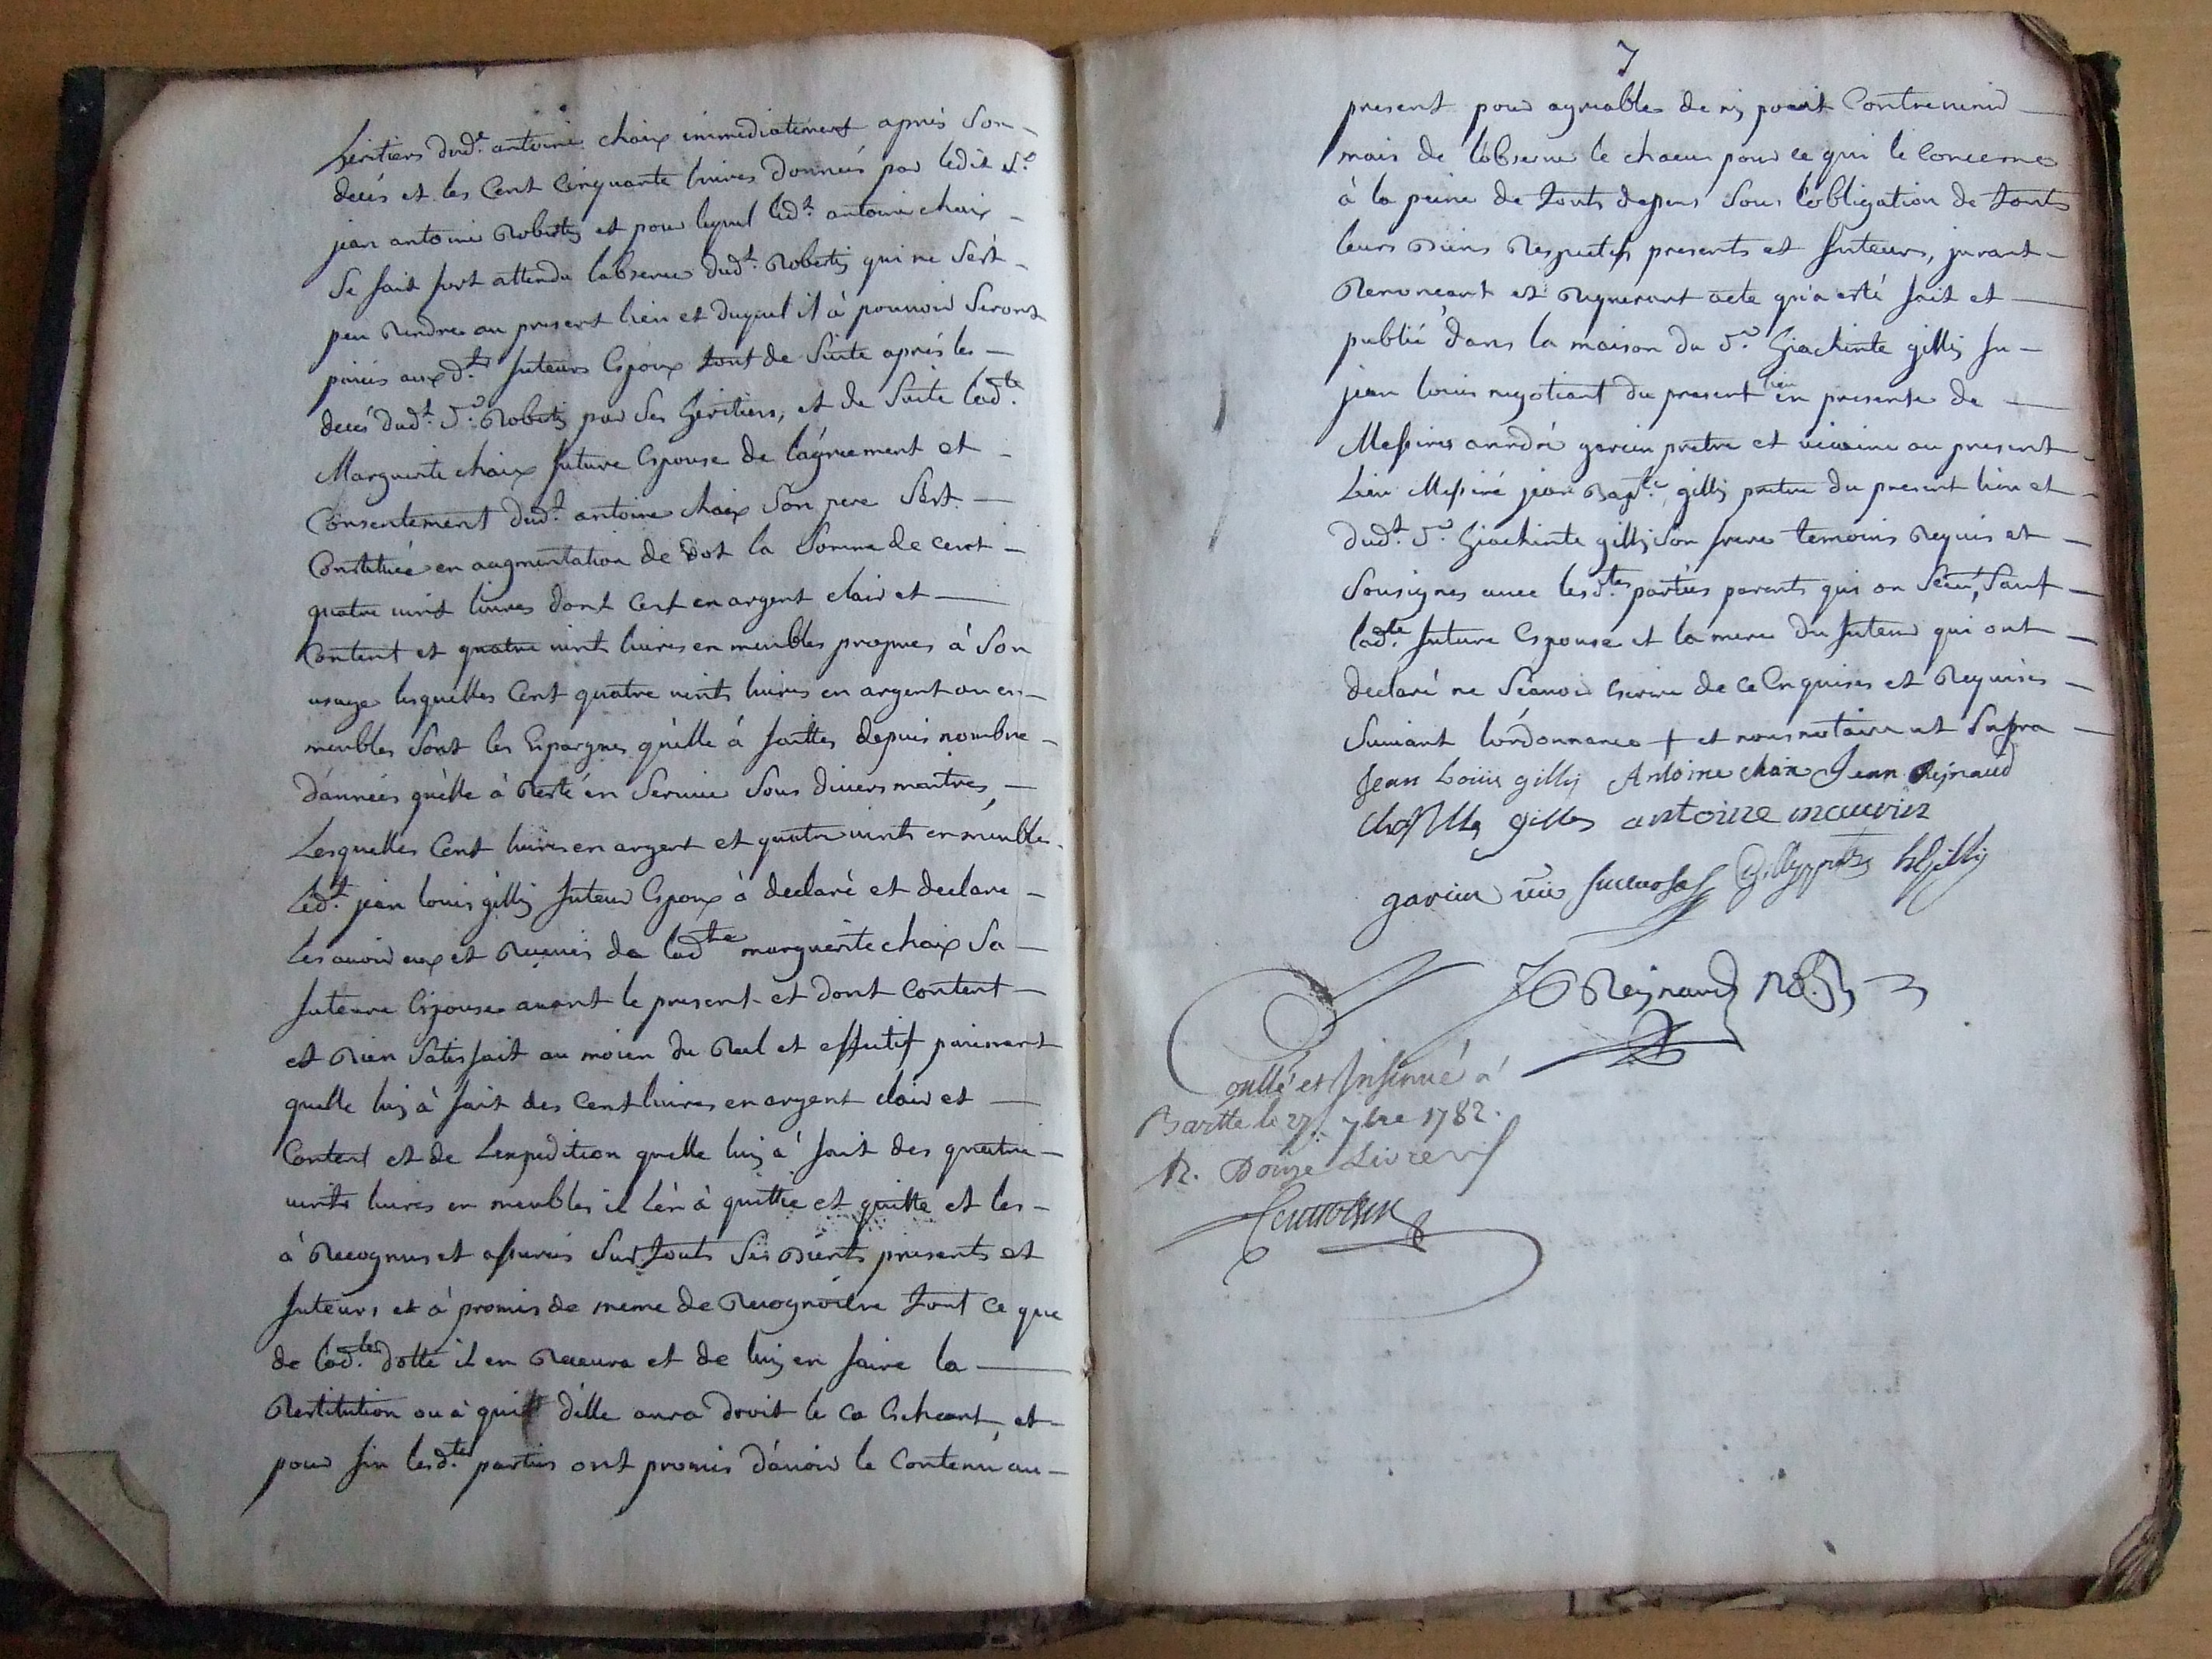 heritiers dud.t antoine chaix immediatement après son
decés et les Cent Cinquante livres données par ledit s.r
jean antoine Robertÿ et pour lequel led.t antoine chaix
se fait fort attendu labsence dud.t Robertÿ qui ne s'est
peu Rendre au present lieu et duquel il à pouvoir seront
paiées aux d.ts futeurs Espoux tout de suite aprés les
decés dud.t s.r Robertÿ par ses heritiers, et de suite lad.te
Marguerite chaix future Espouse de l'agréement et
Consentement dud.t antoine chaix son pere s'est
Constituée en augmentation de Dot la somme de cent
quatre vint livres dont cent en argent clair et
Content et quatre vints livres en meubles propres à son
usage lesquelles Cent quatre vints livres en argent ou en
meubles sont les Epargnes qu'elle à faittes depuis nombre
d'années qu'elle à Resté en service sous divers maitres,
Lesquelles Cent livres en argent et quatre vints en meubles
led.t jean louis gillÿ futeur Espoux à declaré et declare
les avoir eux et Reçues de lad.te marguerite chaix sa
futeure Espouse avant le present et dont content
et Bien satisfait au moien du Reel et effectif paiement
quelle luÿ à fait des cent livres en argent clair et
Content et de Lexpedition quelle luÿ à fait des quatre
vints livres en meubles il l'en à quitté et quitte et les
à Recognues et assurées sur touts ses Bients presents et
futeurs et à promis de meme de Recognoitre tout ce que
de lad.te dotte il en Recevra et de luÿ en faire la
Restitution ou à qui d'elle aura droit le ca Escheant, et
pour fin lesd.tes parties ont promis d'avoir le Contenu au
7
present pour agreable de nÿ point Contrevenir
mais de l'observer le chacun pour ce qui le concerne
à la peine de touts depens sous l'obligation de touts
leurs Biens Respectifs presents et futeurs, jurant
Renonceant et Requerant acte qu'a esté fait et
publié dans la maison du s.r hiachinte gillÿ fu
jean louis negotiant du present lieu en presence de
Messires anndré garcin pretre et vicaire au present
Lieu Messire jean Bap.te gillÿ pretre du present lieu et
dud.t s.r hiachinte gillÿ son frere temoins Requis et
sousignes avec lesd.tes parties parents qui on sceu, sauf
lad.te future Espouse et la mere du futeur qui ont
declaré ne sçavoir Escrire de ce Enquises et Requises
suivant l'ordonnance + et nous notaire ut supra
Jean Louis gillÿ Antoine chaix Jean Reÿnaud
gilles antoine maurin
garcin vic gillÿ prtre hgillÿ
Reÿnaud no.Rÿ
Conllé et Insinué á
Bartte le 27. 7bre 1782.
R. Douze Livres